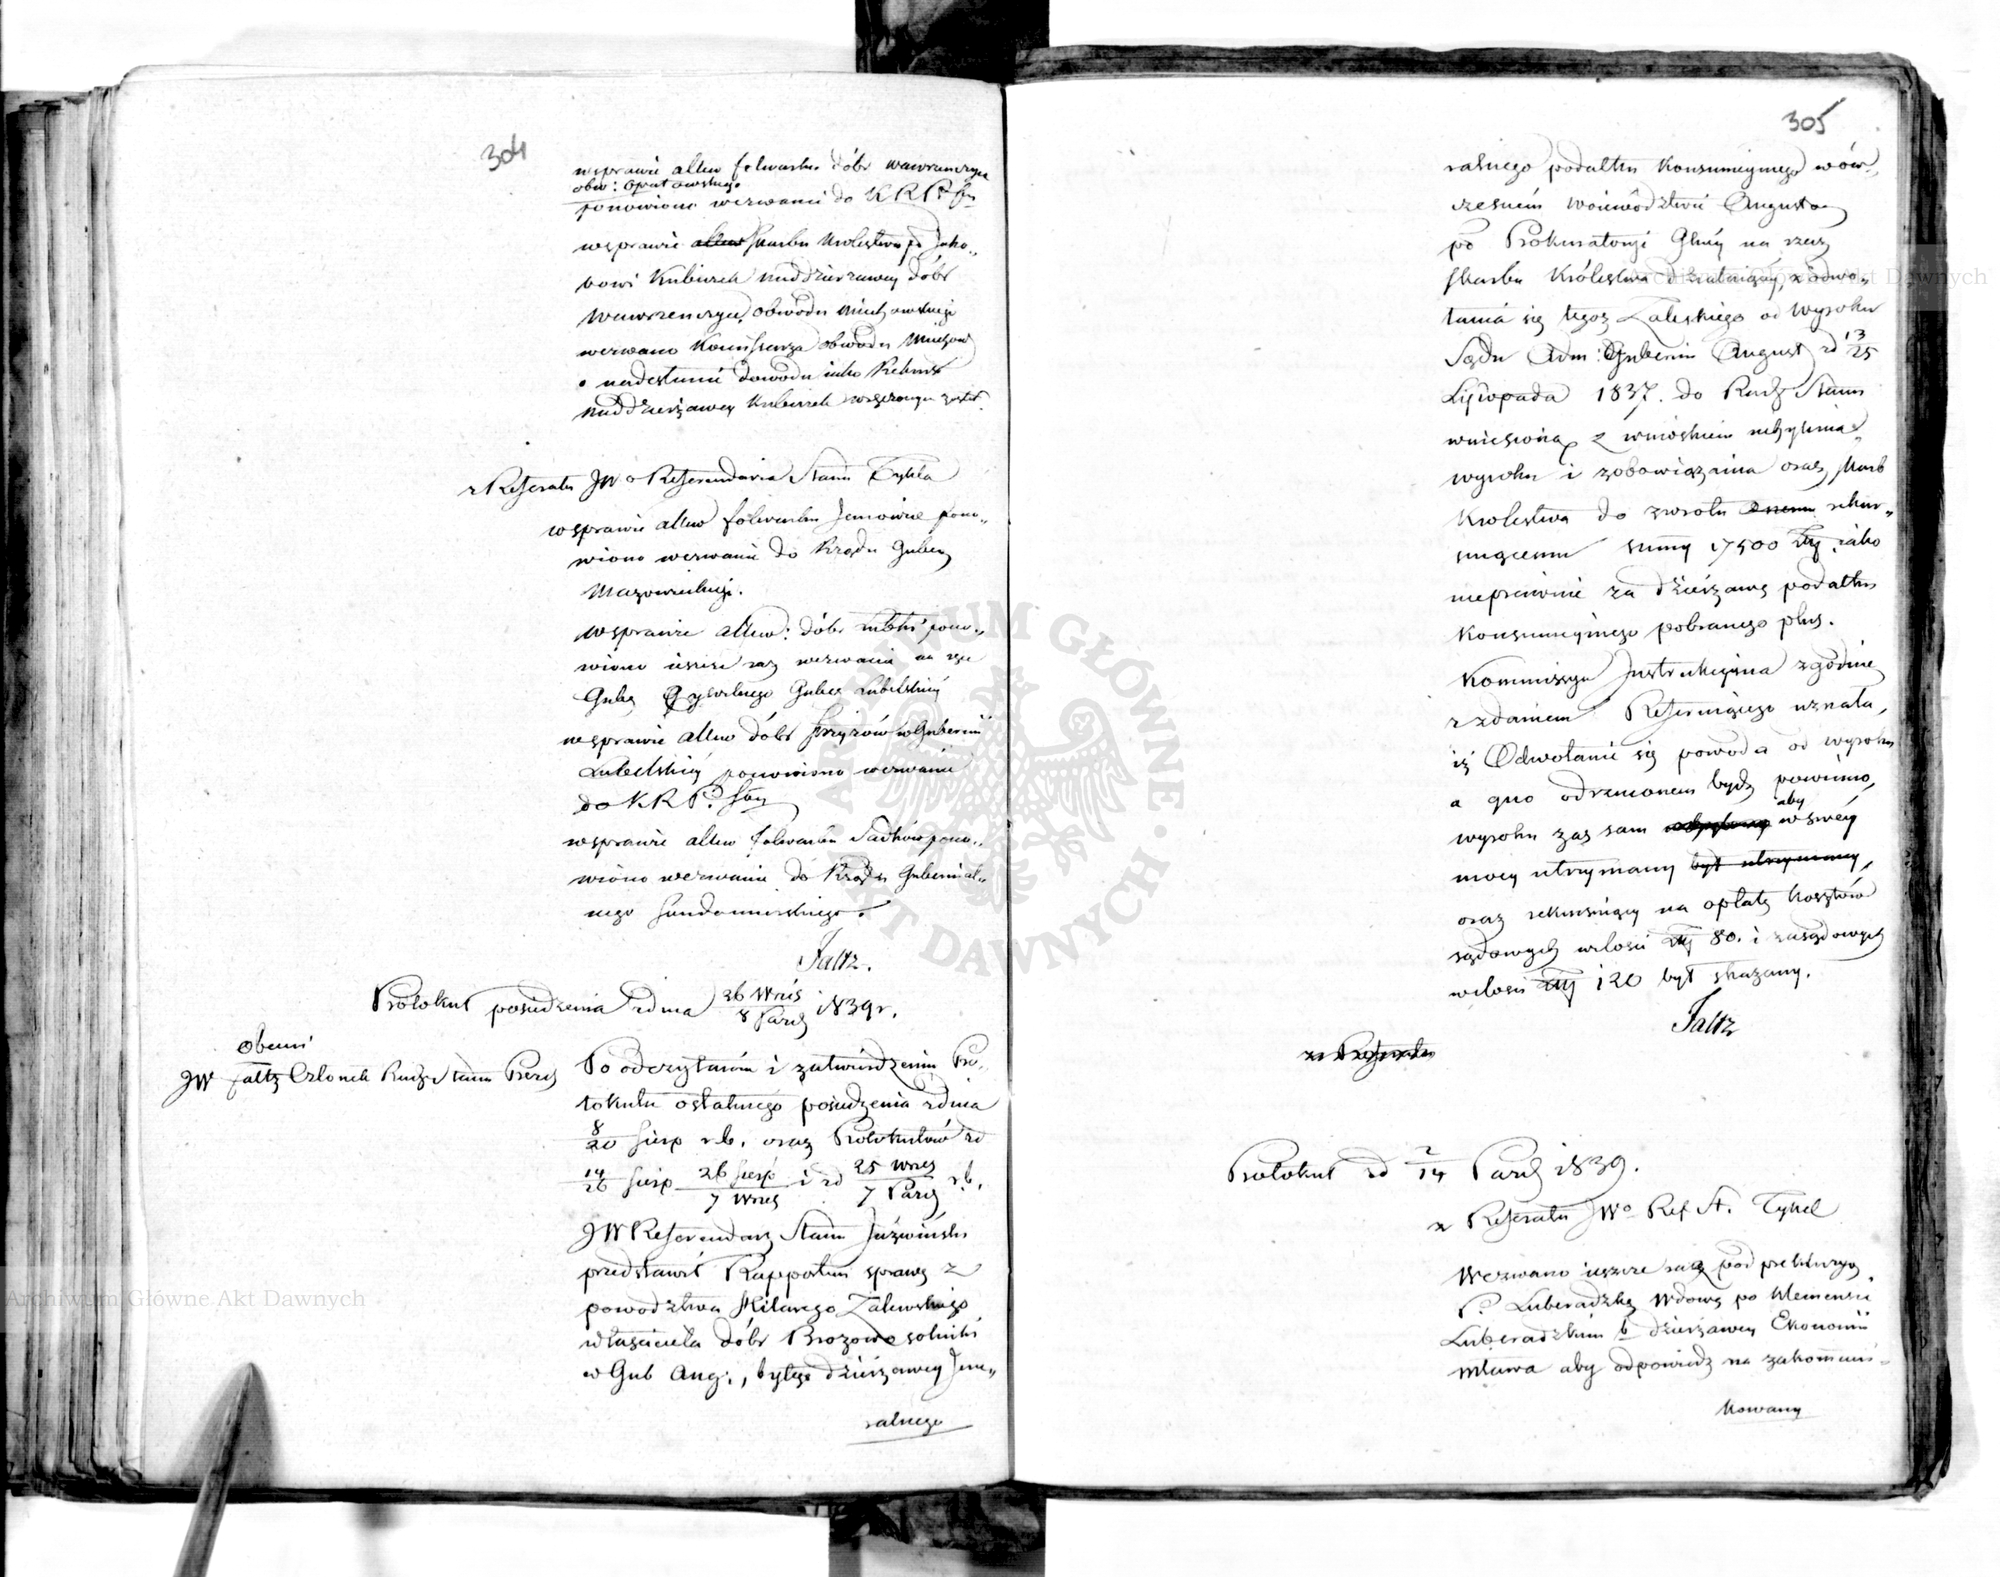 304
w sprawie allew folwarku dóbr Wawrzenczyce
obw: Opatowskiego
ponowiono wezwanie do KRP. Sbu
w sprawie Skarbu Królestwa po Jako-
bowi Kubiczek naddzierzawcy dóbr
Wawrzenczyce, obwodu Miechowskiego
wezwano Kommissarza obwodu Miechow
o nadesłanie dowodu iako Rekurs
naddzierżawcy Kubiczek wręczonym został.
z Referatu JWo Referendarza Stanu Tykla
w sprawie allew folwarku pono-
wiono wezwanie do Rządu Guber
Mazowieckiego.
w sprawie allew: dóbr pono-
wiono iescze raz wezwanie na ręce
Gube Cywilnego Gube Lubelskiey
w sprawie allew dóbr w Gubernii
Lubelskiey ponowiono wezwanie
do KRP. Sbu
w sprawie allew folwarku Sadków pono-
wiono wezwanie do Rządu Gubernial-
nego Sandomirskiego.
Faltz.
Protokuł posiedzenia z dnia 26 Wrześ / 8 Paźd 1839 r.
Obecni
JW Faltz Członek Rady Stanu Prezd
Po odczytaniu i zatwierdzeniu Pro-
tokułu ostatniego posiedzenia z dnia
8/20 Sierp r.b. oraz Protokułów zd
14/26 Sierp 26 Sierp / 7 Wrześ i zd 25 Wrześ / 7 Paźd r.b.
JW Referendarz Stanu Jóźwiński
przedstawił Rapportem sprawę z
powodztwa Hilarego Zalewskiego
właściciela dóbr Brozowo solniki
w Gub Aug., byłego dzierżawcy Jene-
ralnego
305
ralnego podatku Konsumcyinego wów-
czesném Woiewództwie Augustow
po Prokuratoryi Głney na rzecz
Skarbu Królestwa działaiącey, z odwo-
łania się tegoż Zaleskiego od wyroku
Sądu Adm: Gubernii August zd 13/25
Listopada 1837. do Rady Stanu
wniesioną z wnioskiem uchylenia
wyroku i zobowiązania oraz Skarb
Królestwa do zwrotu rekur-
suiącemu summy 17500 złp. iako
nieprawnie za dzierżawę podatku
Konsumcyinego pobranego plus.
Kommissya Instrukcyina zgodnie
z zdaniem Referuiącego uznała,
iż Odwołanie się powoda od wyroku
a quo odrzuconem bydź powinno,
aby
wyroku zaś sam w swéy
mocy utrzymany być utrzymany,
oraz rekursuiący na opłatę kosztów
sądowych w ilości złp 80. i zasądowych
w ilości złp 120 był skazany.
Faltz
z Referatu
Protokuł zd 2/14 Paźd 1839.
z Referatu JWo Ref St. Tykel
Wezwano iescze raz pod prekluzyą
P. Luberadzką Wdowę po Klemensie
Luberadzkim b dzierżawcy Ekonomii
Mława aby odpowiedź na zakommuni-
kowany